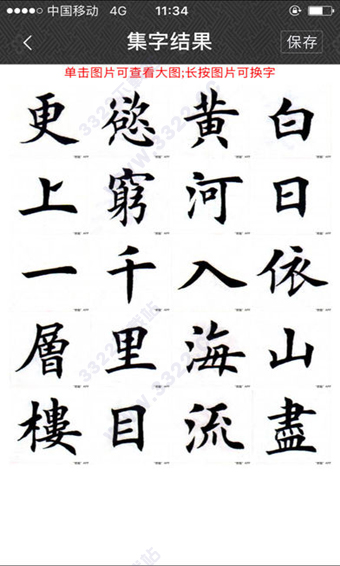 中国移动 4G 11:34
集字结果
保存
单击图片可查看大图;长按图片可换字
白日依山盡
黄河入海流
慾窮千里目
更上一層樓